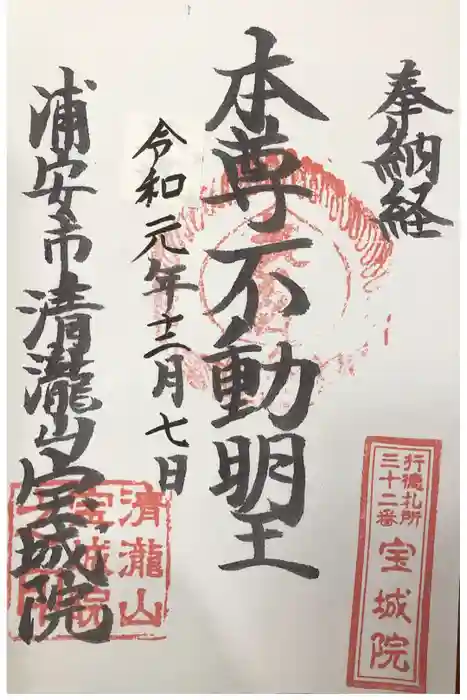 奉納経
行徳札所
三十二番
宝城院
本尊不動明王
令和元年十二月七日
浦安市清瀧山宝城院
清瀧山
宝城院